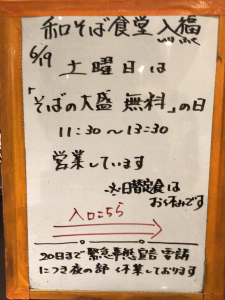 和そば食堂 入福
いり ふく
6/19
土曜日は
「そばの大盛 無料」の日
11:30〜13:30
営業しています
※日替定食は
おくれです
入口こちら
20日まで 緊急事態宣言 要請
につき夜の部 休業しております